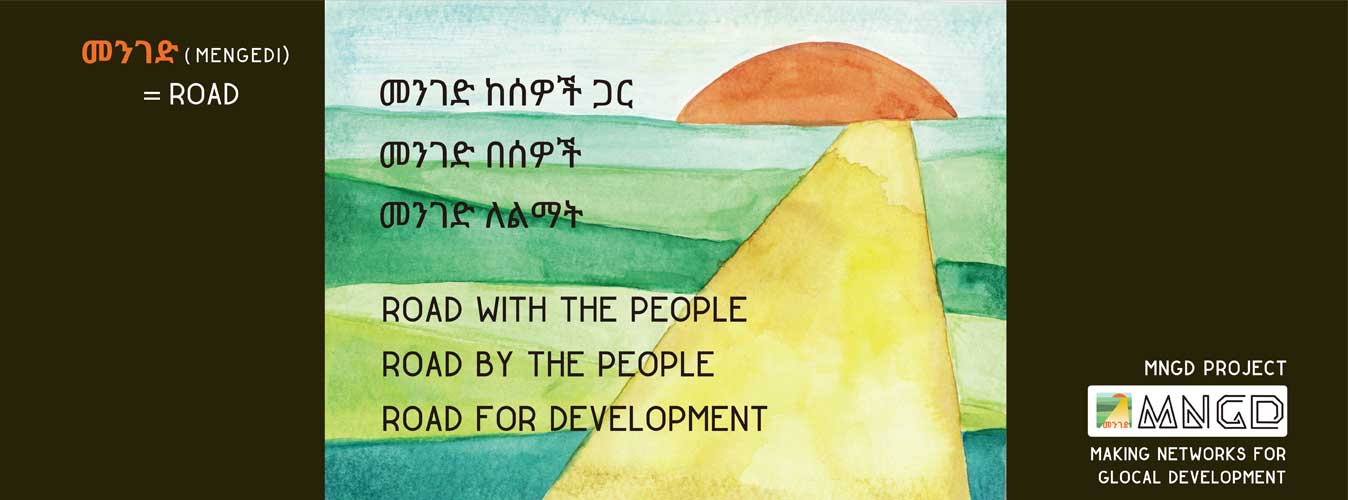 መንገድ (MENGEDI)
= ROAD
መንገድ ከሰዎች ጋር
መንገድ በሰዎች
መንገድ ለልማት
ROAD WITH THE PEOPLE
ROAD BY THE PEOPLE
ROAD FOR DEVELOPMENT
MNGD PROJECT
መንገድ MNGD
MAKING NETWORKS FOR
GLOCAL DEVELOPMENT